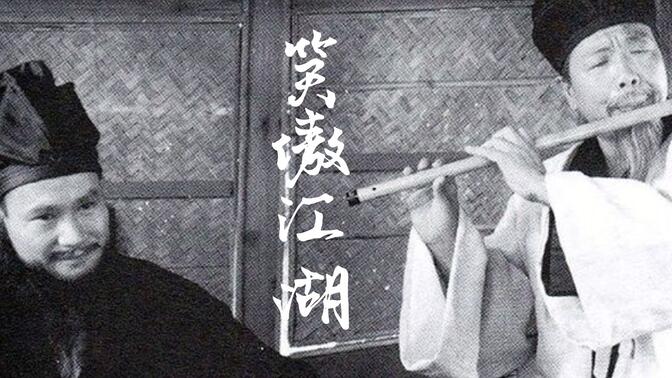 笑傲江湖